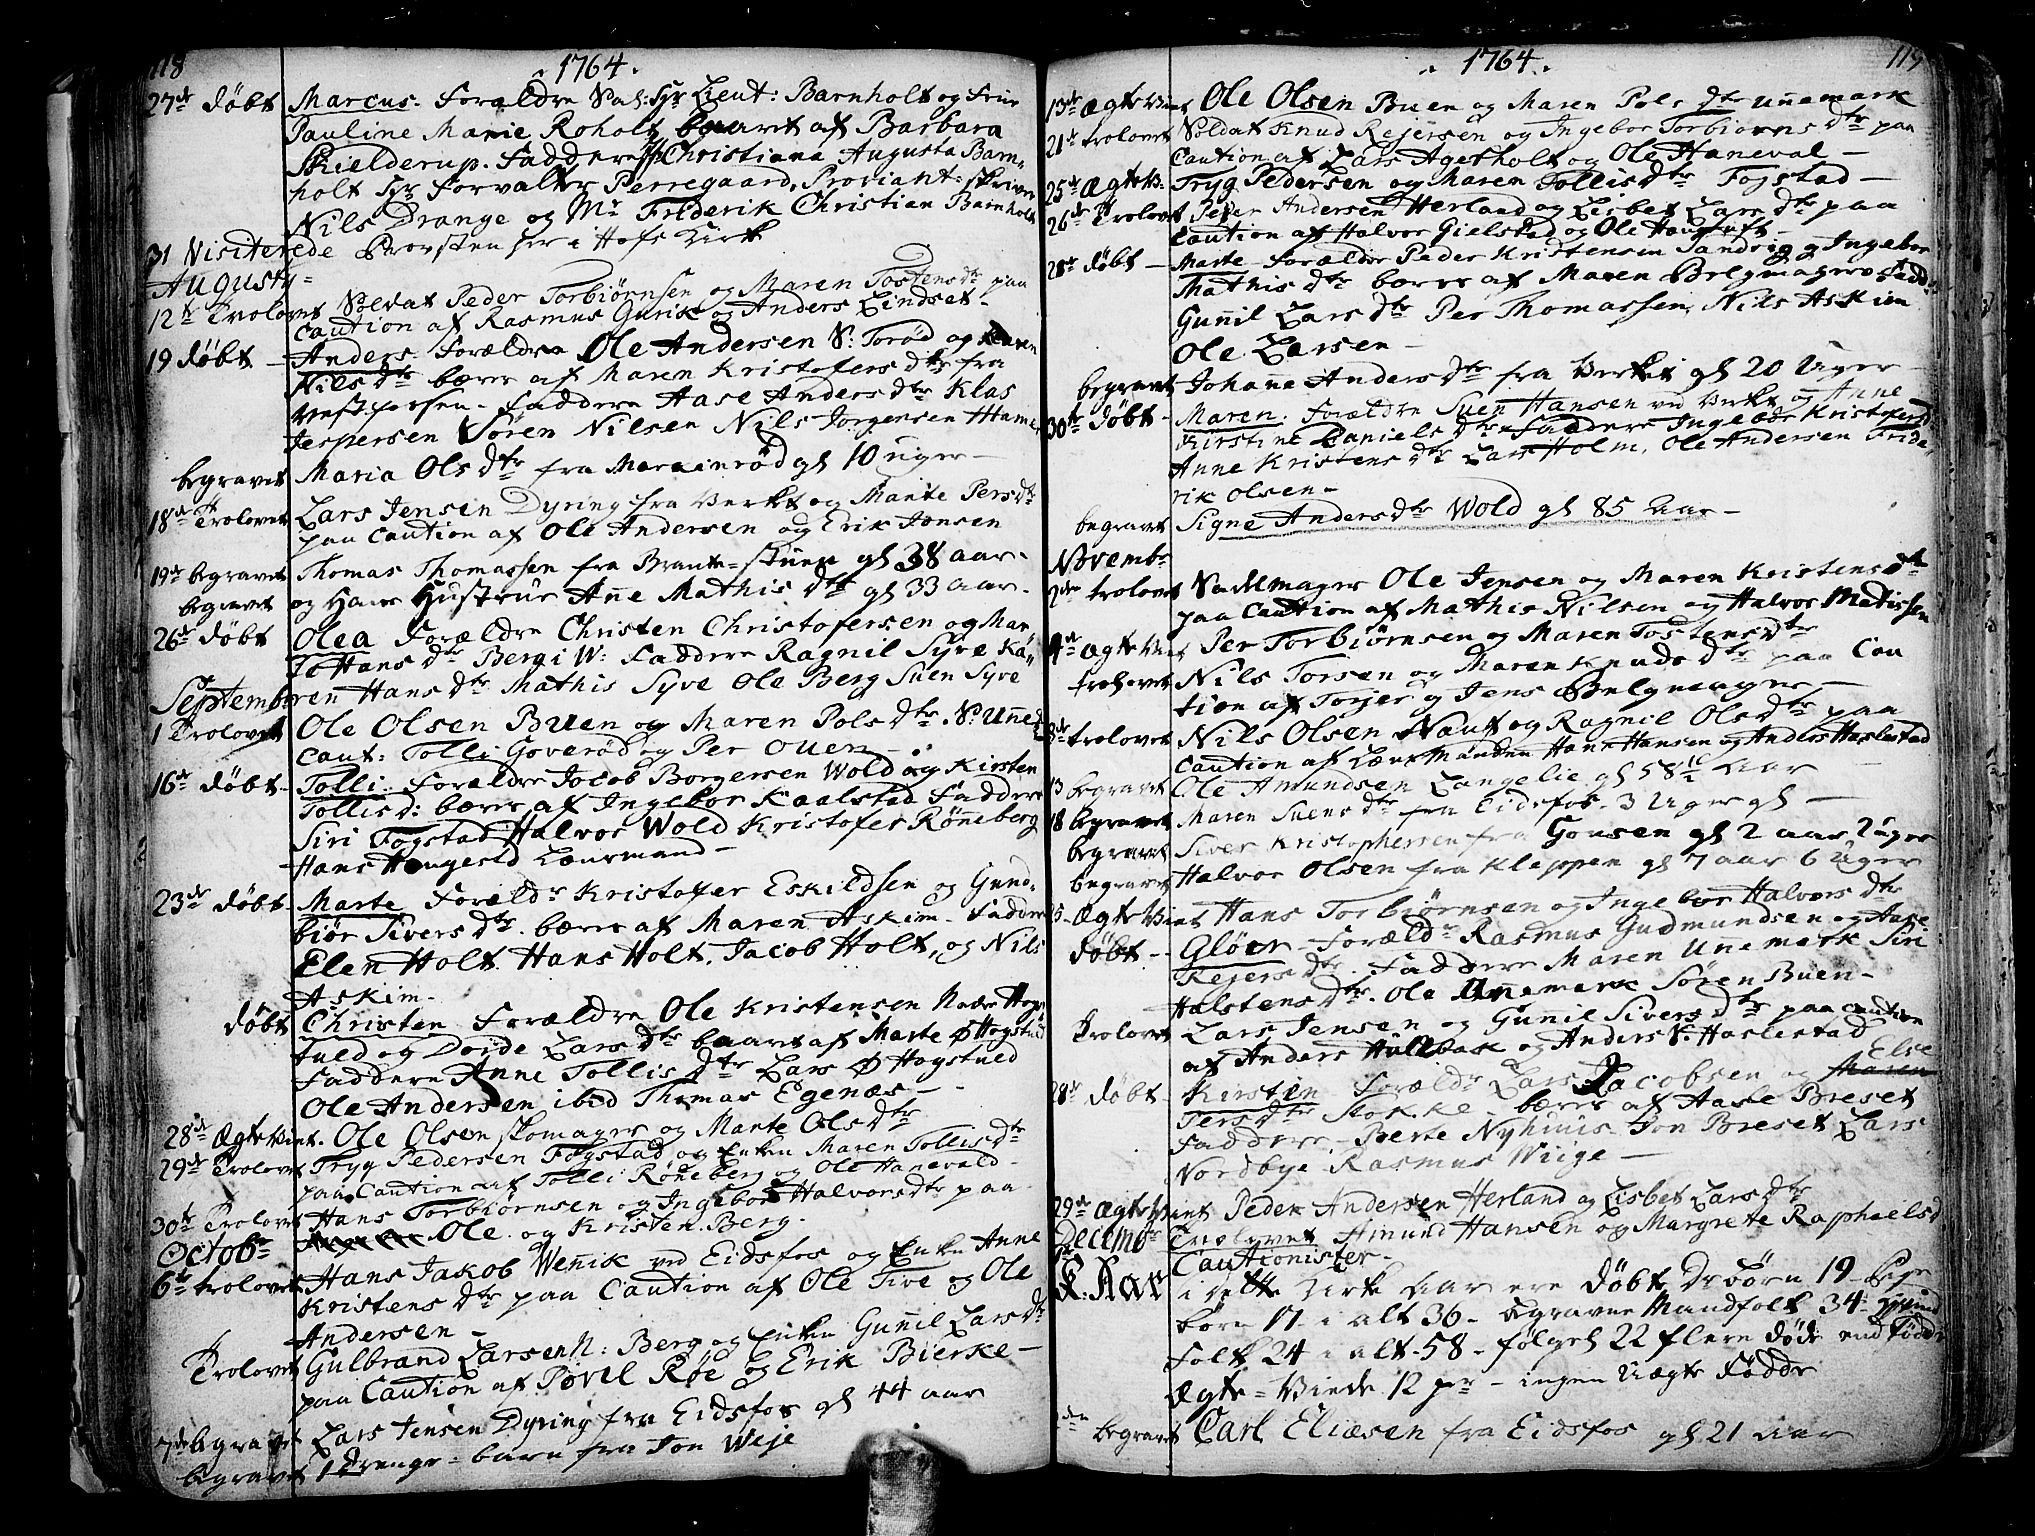 118
1764.
27de døbt Marcus. Forældre Sal: Hr Lieut: Barnholt og Frue
Pauline Marie Roholt, baaret af Barbara
Skielderup. Faddere Christiana Augusta Barn
holt Hr Forvalter Perregaard, Proviant-skriver
Nils Drange og Mr Friderik Christian Barnholt
31 Visiterede Provsten her i Hofs Kirk
Augusty
12te Trolovet Soldat Peder Torbiørnsen og Maren Tostensdtr paa
Caution af Rasmus Gurik og Anders Lindset
19 døbt Anders. Forældre Ole Andersen S: Torød og Karen
Nilsdtr bæres af Maren Kristofersdtr fra
Vestfossen. Faddere Aase Andersdtr Klas
Jespersen Søren Nilsen Nils Jørgensen Hamer
begravet Maria Olsdtr fra Marainrød gl 10 uger
18de Trolovet Lars Jensen Dyring fra Verket og Mante Persdtr
paa Caution af Ole Andersen og Erik Jonsen
19de begravet Thomas Thomassen fra Brante-skuen gl 38 aar.
begravet og Hans Hustrue Anne Mathisdtr gl 33 aar.
26de døbt Olea Forældre Christen Christofersen og Mar
Hansdtr Berg i W: Faddere Ragnil Syve Ka
ren Hansdtr Mathis Syve Ole Berg Suen Syve
Septemb
1 Trolovet Ole Olsen Buen og Maren Polsdtr N: Unne
Caut: Tolli Goverød og Per Ouen
16de døbt Tolli. Forældre Jocob Borgersen Wold og Kirsten
Tollisd: bæres af Ingebor Kaalstad Faddere
Siri Fogstad Halvor Wold Kristofer Rønneberg
Hans Haugestd Lænsmand
23de døbt Marte Forældr Kristofer Eskildsen og Gund
biør Siversdtr. bæres af Maren Askim. Faddere
Elen Holt. Hans Holt, Jacob Holt, og Nils
Askim.
døbt Christen Forældre Ole Kristensen Nedre Hog
stuld og Dorde Larsdtr baaret af Marte Ø Hogstuld
Faddere Anne Tollisdtr Lars Ø Hogstuld
Ole Andersen ibid Thomas Egenæs
28de Ægte Viet. Ole Olsen skomager og Mante Olsdtr
29de Trolovet Tryg Pedersen Fogstad og Enken Maren Tollisdtr
paa Caution af Tolli Røneberg og Ole Hanevald
30te Trolovet Hans Torbiørnsen og Ingebor Halvorsdtr paa
Ole og Kristen Berg.
Octobr
6te trolovet Hans Jakob Wennik ved Eidsfos og Enken Anne
Kristensdtr paa Caution af Ole Tive og Ole
Andersen
Trolovet Gulbrand Larsen N: Berg og Enken Gunnil Larsdtr
paa Caution af Povel Røe og Erik Bierke
7de begravet Lars Jensen Dyring fra Eidsfos gl 44 aar
begravet 1 Drenge-barn fra Jon Weje
119
1764.
13de Ægte Viet Ole Olsen Buen og Maren Pols dtr Unnemark
21de trolovet Soldat Knud Rejersen og Ingebor Torbiørnsdtr paa
Caution af Lars Agerholt og Ole Haneval
25de Ægte V: Tryg Pedersen og Maren Tollisdtr Fogstad
26de Trolovet Peder Andersen Herland og Lisbet Larsdtr paa
Caution af Halvor Gielstad og Ole Haugtuft
28de døbt Marte Forældre Peder Kristensen Sandvig og Ingebor
Mathisdtr bæres af Maren Belgmager Fadd:
Gunnil Larsdtr Per Thomassen, Nils Askim
Ole Larsen
begravet Johanne Andersdtr fra Verket gl 20 Uger
30te døbt Maren. Forældre Suen Hansen ved Verket og Anne
Kirstine Danielsdtr Faddere Ingebor Kristofersd
Anne Kristensdtr Lars Holm, Ole Andersen Fride
rik Olsen
begravet Signe Andersdtr Wold gl 85 Aar
Novembr
2den trolovet Sadelmager Ole Jensen og Maren Kristensdtr
paa Caution af Mathis Nilsen og Halvor Matissen
Ægte Viet Per Torbiørnsen og Maren Tostensdtr
trolovet Nils Torsen og Maren Knudsdtr paa Cau
tion af Torjer og Jens Belgmager
trolovet Nils Olsen Naut og Ragnil Olsdtr paa
Caution af Lænsmanden Hans Hansen og Anders Haslestad
13 begravet Ole Amundsen Langelie gl 58 1/2 Aar
18 begravet Maren Suensdtr fra Eidsfos 3 Uger gl
begravet Siver Kristophersen fra Gousen gl 2 aar 2 uger
begravet Halvor Olsen fra Kleppen gl 7 aar 6 Uger
Ægte Viet Hans Torbiørnsen og Ingebor Halvorsdtr
døbt Gløer Forældr Rasmus Gudmundsen og Aase
Rejersdtr. Faddere Maren Unemark Siri
Halstensdtr. Ole Unnemark Søren Buen
Trolovet Lars Jensen og Gunil Siversdtr paa caution
af Anders Hulbak og Anders N. Haslestad
28de døbt Kirsten Forældr Lars Jacobsen og Maren Else
Persdtr Stokke. bæres af Aase Breset
Faddere Berte Nyhuus Jon Breset Lars
Nordbye Rasmus Wiige
29de Ægte Viet Peder Andersen Herland og Lisbet Larsdtr
Decembr
Trolovet Amund Hansen og Margrete Raphaelsd
Cautionister
K. Aar i dette Kirke Aar ere døbt Dr Børn 19 Pige
børn 17 i alt 36 begravne Mandfolk 34 qvind
folk 24 i alt 58 følgel 22 flere døde end fødde
Ægte-Viede 12 par ingen Uægte fødde
begravet Carl Eliæsen fra Eidsfos gl 21 aar